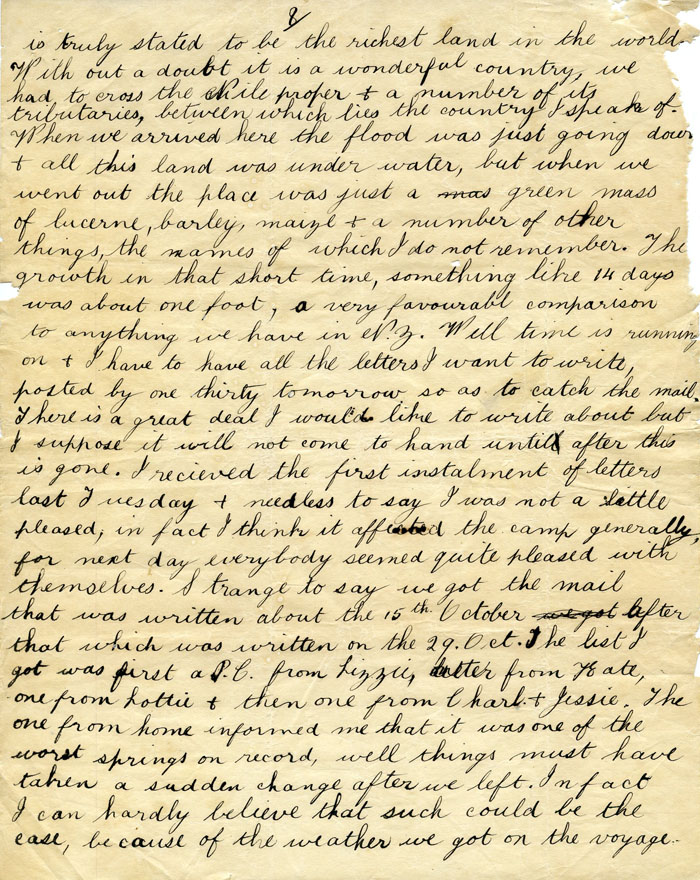 8
is truly stated to be the richest land in the world.
With out a doubt it is a wonderful country, we
had to cross the Nile proper & a number of its
tributaries, between which lies the country I speak of.
When we arrived here the flood was just going down
& all this land was under water, but when we
went out the place was just a mas green mass
of lucerne, barley, maize & a number of other
things, the names of which I do not remember. The
growth in that short time, something like 14 days
was about one foot, a very favourable comparison
to anything we have in N.Z. Well time is running
on & I have to have all the letters I want to write,
posted by one thirty tomorrow so as to catch the mail.
There is a great deal I would like to write about but
I suppose it will not come to hand until after this
is gone. I recieved the first instalment of letters
last Tuesday & needless to say I was not a little
pleased, in fact I think it affected the camp generally,
for next day everybody seemed quite pleased with
themselves. Strange to say we got the mail
that was written about the 15th October we got after
that which was written on the 29. Oct. The list I
got was first a P.C. from Lizzie, letter from Kate,
one from Lottie & then one from Charl. & Jessie. The
one from home informed me that it was one of the
worst springs on record, well things must have
taken a sudden change after we left. In fact
I can hardly believe that such could be the
case, because of the weather we got on the voyage.